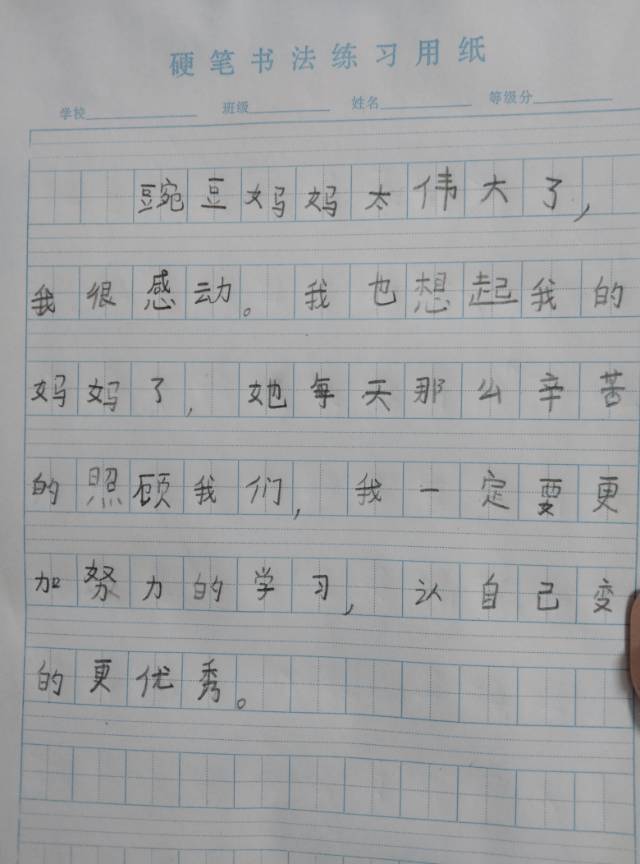 硬笔书法练习用纸
学校 班级 姓名 等级分
豌豆妈妈太伟大了,
我很感动。我也想起我的
妈妈了,她每天那么辛苦
的照顾我们,我一定要更
加努力的学习,认自己变
的更优秀。